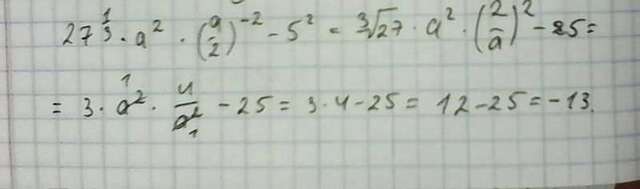 27^{1/3} · a² · (a/2)⁻² − 5² = ∛27 · a² · (2/a)² − 25 =
= 3 · a² 1 · 4/a² 1 − 25 = 3 · 4 − 25 = 12 − 25 = −13.